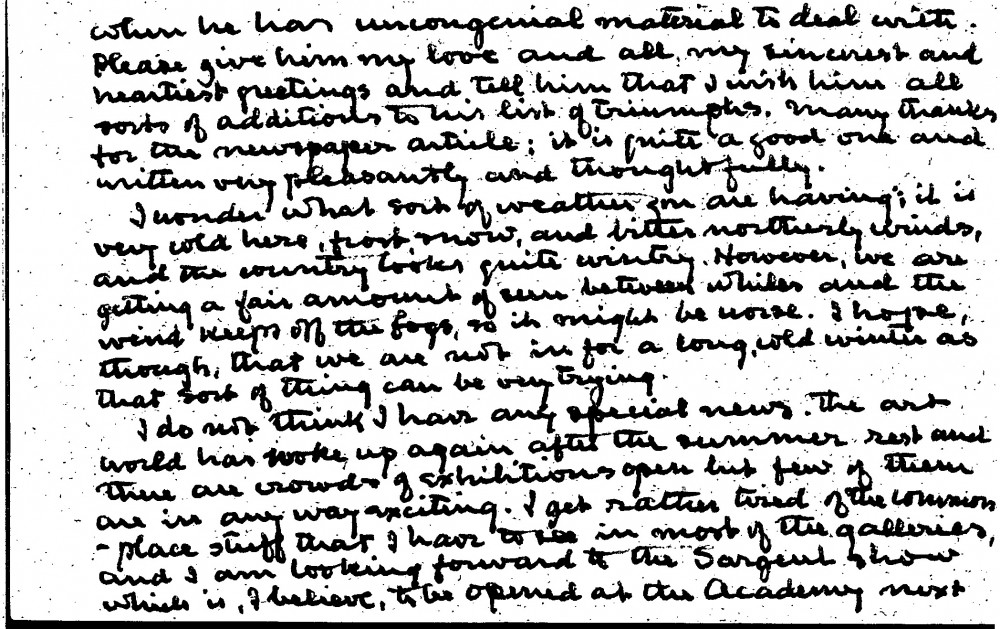 when he has uncongenial material to deal with.
Please give him my love and all my sincerest and
heartiest greetings and tell him that I wish him all
sorts of additions to his list of triumphs. Many thanks
for the newspaper article; it is quite a good one and
written very pleasantly and thoughtfully.
I wonder what sort of weather you are having; it is
very cold here, frost, snow, and bitter northerly winds,
and the country looks quite wintry. However, we are
getting a fair amount of sun between whiles and the
wind keeps off the fogs, so it might be worse. I hope,
though, that we are not in for a long, cold winter as
that sort of thing can be very trying.
I do not think I have any special news. The art
world has woke up again after the summer rest and
there are crowds of exhibitions open but few of them
are in any way exciting. I get rather tired of the common
-place stuff that I have to see in most of the galleries,
and I am looking forward to the Sargent show
which is, I believe, to be opened at the Academy next